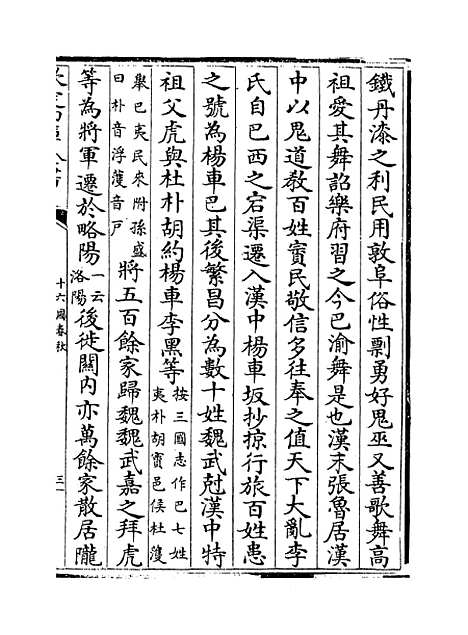 鐵丹漆之利民用敦阜俗性剽勇好鬼巫又善歌舞高
祖愛其舞詔樂府習之今巴渝舞是也漢末張魯居漢
中以鬼道教百姓賨民敬信多往奉之值天下大亂李
氏自巴西之宕渠遷入漢中楊車坂抄掠行旅百姓患
之號為楊車巴其後繁昌分為數十姓魏武尅漢中特
祖父虎與杜朴胡約楊車李黑等按三國志作巴七姓夷朴胡賨邑侯杜濩
舉巴夷民來附孫盛曰朴音浮濩音戸將五百餘家歸魏魏武嘉之拜虎
等為將軍遷於略陽一云洛陽後徙關内亦萬餘家散居隴
十六國春秋
三